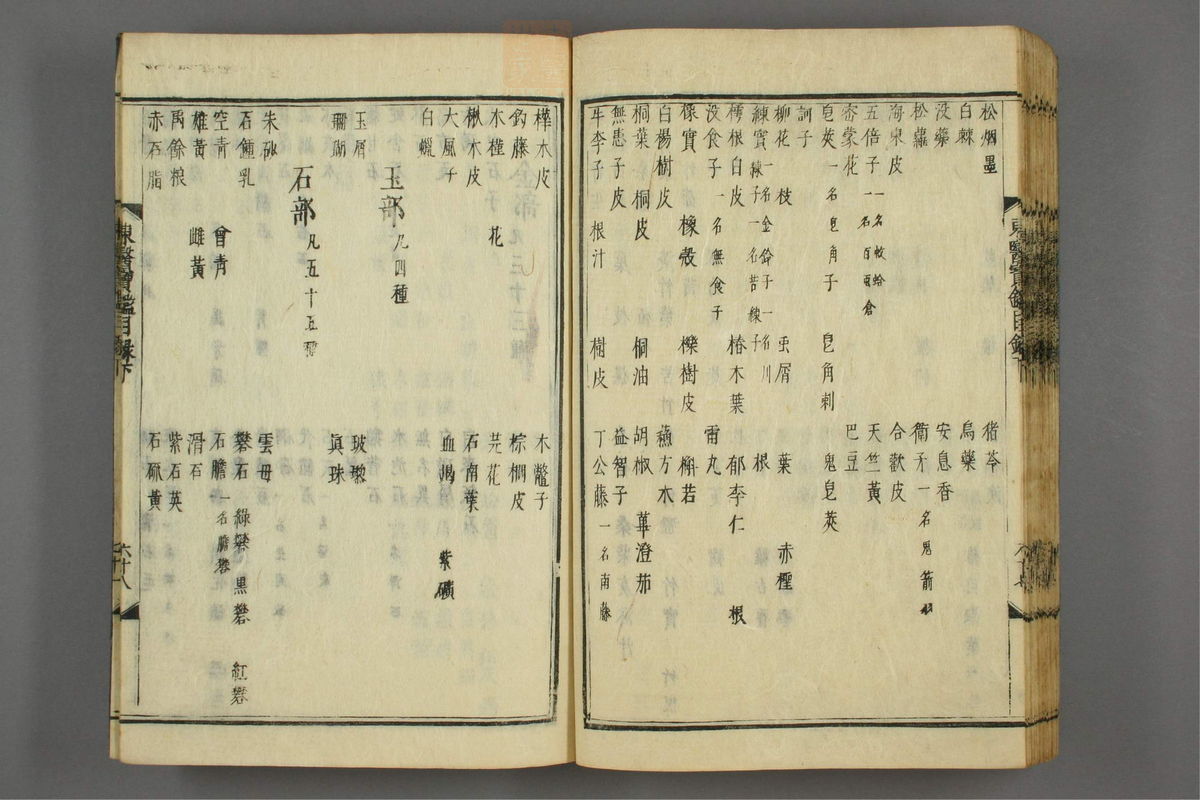 松烟墨 猪苓
白棘 烏藥
没藥 安息香
松蘿 衛矛一名鬼箭
海東皮 合歡皮
五倍子一名蚊蛤一名百蟲倉 天竺黃
密蒙花 巴豆
皂莢一名皂角子 皂角刺 鬼皂莢
訶子
柳花 枝 葉 赤檉
楝實楝子一名金鈴子一名苦楝子一名川 根
樗根白皮 椿木葉 郁李仁 根
没食子一名無食子 雷丸
橡實 橡殼 櫟樹皮 槲若
白楊樹皮 蘓方木
桐葉 桐皮 桐油 胡椒 蓽澄茄
無患子皮 益智子
牛李子 根汁 樹皮 丁公藤一名南藤
東醫寶鑑目録下
樺木皮 木鼈子
釣藤 棕櫚皮
木槿 花 芫花
楸木皮 石南葉
大風子 血竭 紫礦
白蠟
玉部凡四種
玉屑 玻瓈
珊瑚 眞珠
石部凡五十五種
朱砂 雲母
石鍾乳 礬石 綠礬 黑礬 紅礬
空青 曾青 石膽一名膽礬
雄黃 雌黃 滑石
禹餘粮 紫石英
赤石脂 石硫黃
東醫寶鑑目録下 六十八